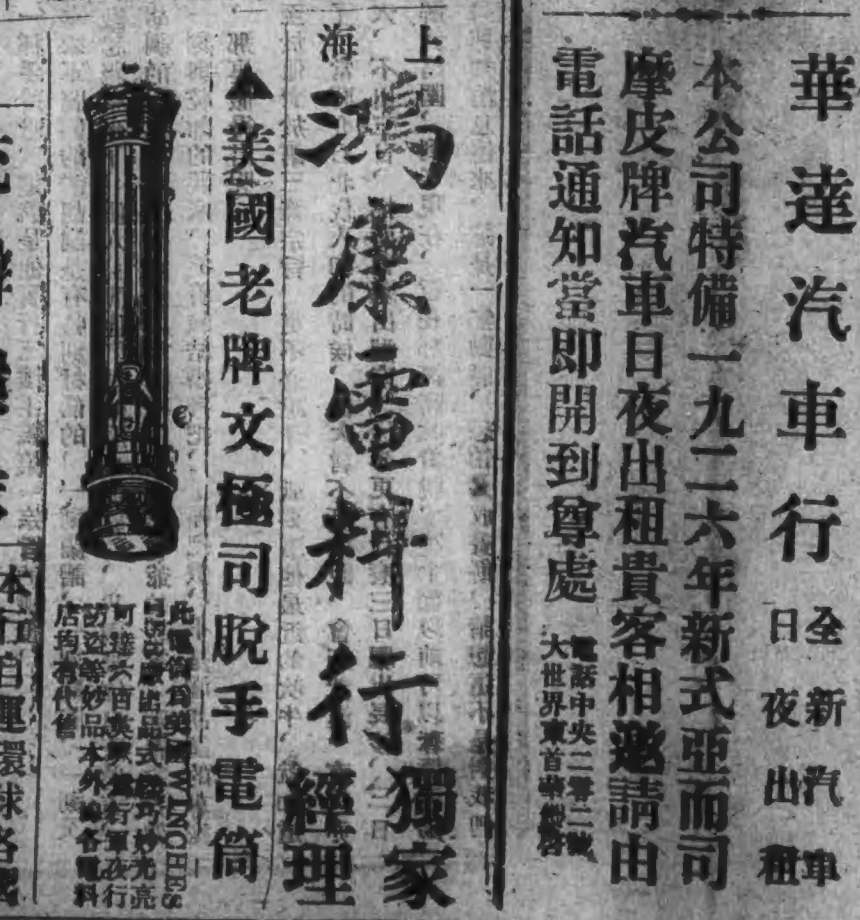 華達汽車行
全新汽車
日夜出租
本公司特備一九二六年新式亞而司
摩皮牌汽車日夜出租貴客相邀請由
電話通知當即開到尊處
電話中央二零二號
大世界東首華達啓
上海
鴻康電料行
獨家
經理
▲美國老牌文極司脫手電筒
此電筒爲美國WINCHES
廠出品式樣巧妙光亮
可達六百英呎爲行軍夜行
防盜等妙品本外埠各電料
店均有代售
本行自運環球各國